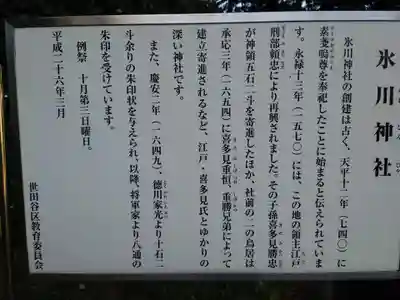 氷川神社
氷川神社の創建は古く、天平十二年（七四〇）に
素盞嗚尊を奉祀したことに始まると伝えられていま
す。永禄十三年（一五七〇）には、この地の領主江戸
刑部頼忠により再興されました。その子孫喜多見勝忠
が神領五石二斗を寄進したほか、社前の二の鳥居は
承応三年（一六五四）に喜多見重恒、重勝兄弟によって
建立寄進されるなど、江戸・喜多見氏とゆかりの
深い神社です。
また、慶安二年（一六四九）、徳川家光より十石二
斗余りの朱印状を与えられ、以降、将軍家より八通の
朱印を受けています。
例祭　十月第三日曜日。
平成二十六年三月
世田谷区教育委員会